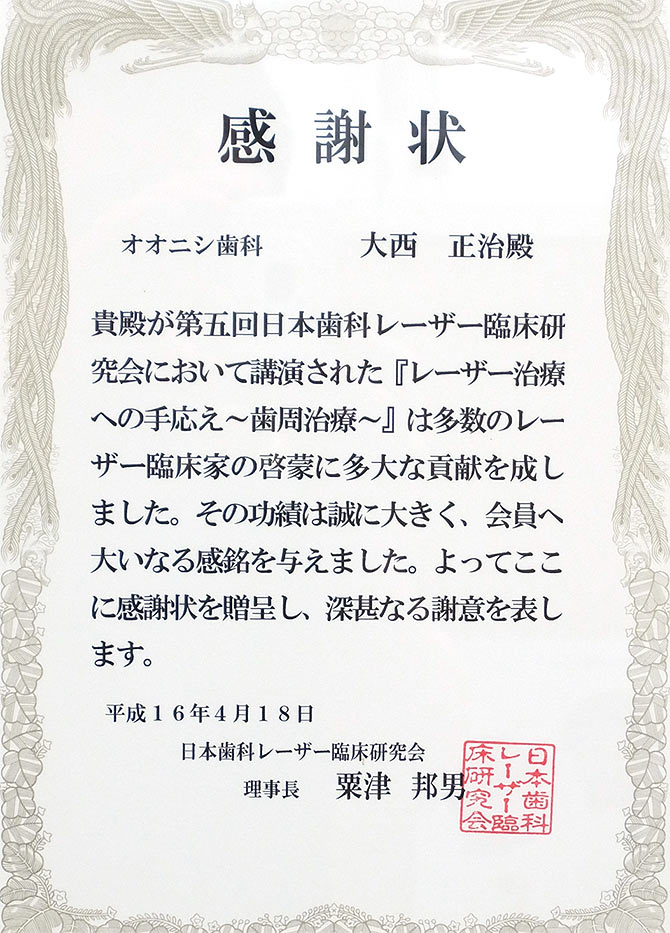 感謝状
オオニシ歯科　大西　正治殿
貴殿が第五回日本歯科レーザー臨床研
究会において講演された『レーザー治療
への手応え～歯周治療～』は多数のレー
ザー臨床家の啓蒙に多大な貢献を成し
ました。その功績は誠に大きく、会員へ
大いなる感銘を与えました。よってここ
に感謝状を贈呈し、深甚なる謝意を表し
ます。
平成１６年４月１８日
日本歯科レーザー臨床研究会
理事長　粟津　邦男
日本歯科
レーザー臨
床研究会